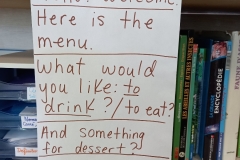 Here is the
menu.
What would
you like: to
drink?/to eat?
And something
for dessert?
ENCYCLOPÉDIE